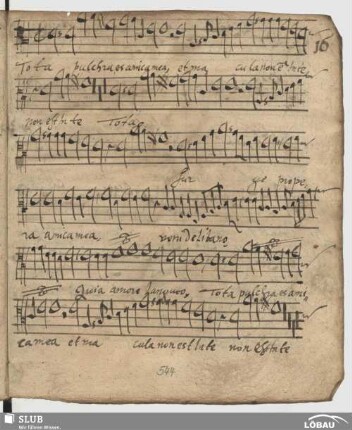 16
Tota pulchra es amica mea, et ma cula non est in te,
non est in te Tota
Sur ge prope
ra amica mea veni de libano
quia amore langueo, Tota pulchra es ami
ca mea et ma cula non est in te non est in te
544
SLUB
Wir führen Wissen.
LÖBAU